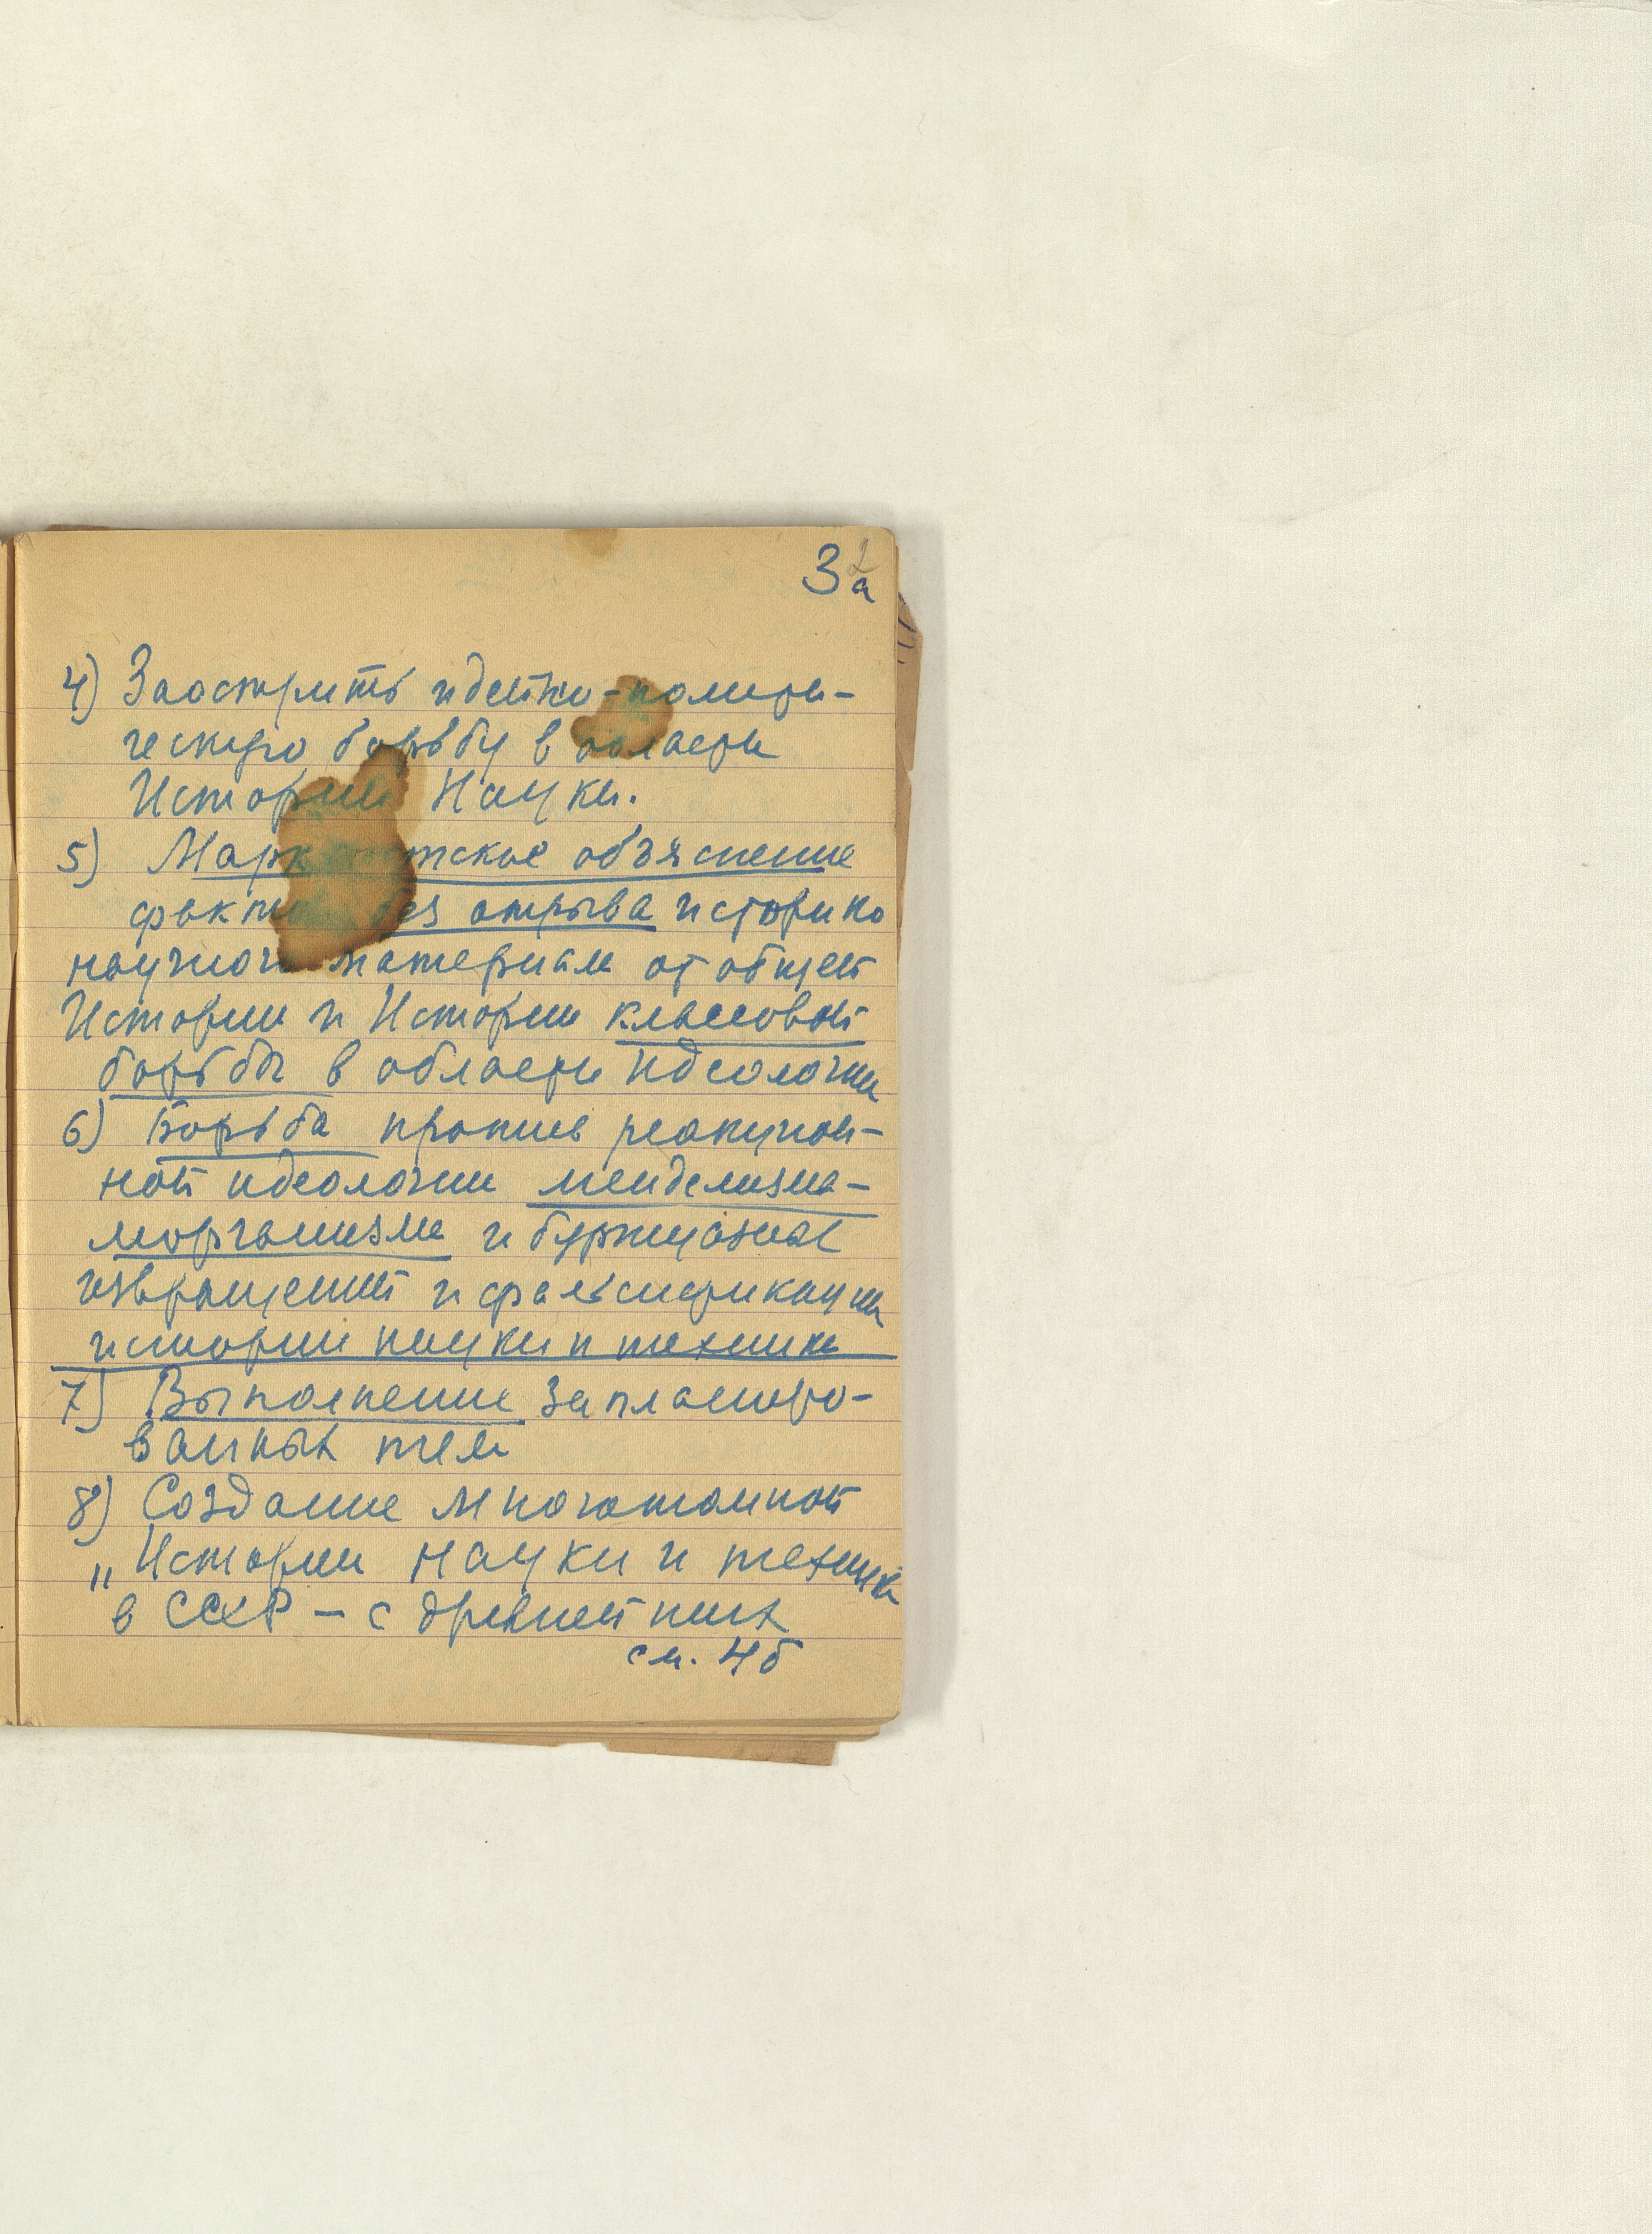 3а
2
4) Заострить идейно-полити-
ческую борьбу в области
Истории Науки.
5) Марксистское объяснение
фактов без отрыва историко
научного материала от общей
Истории и Истории классовой
борьбы в области идеологии
6) Борьба против реакцион-
ной идеологии менделизма-
морганизма и буржуазных
извращений и фальсификации
истории науки и техники
7) Выполнение запланиро-
ванных тем
8) Создание многотомной
„Истории науки и техники
в СССР – с древнейших
см. 4б